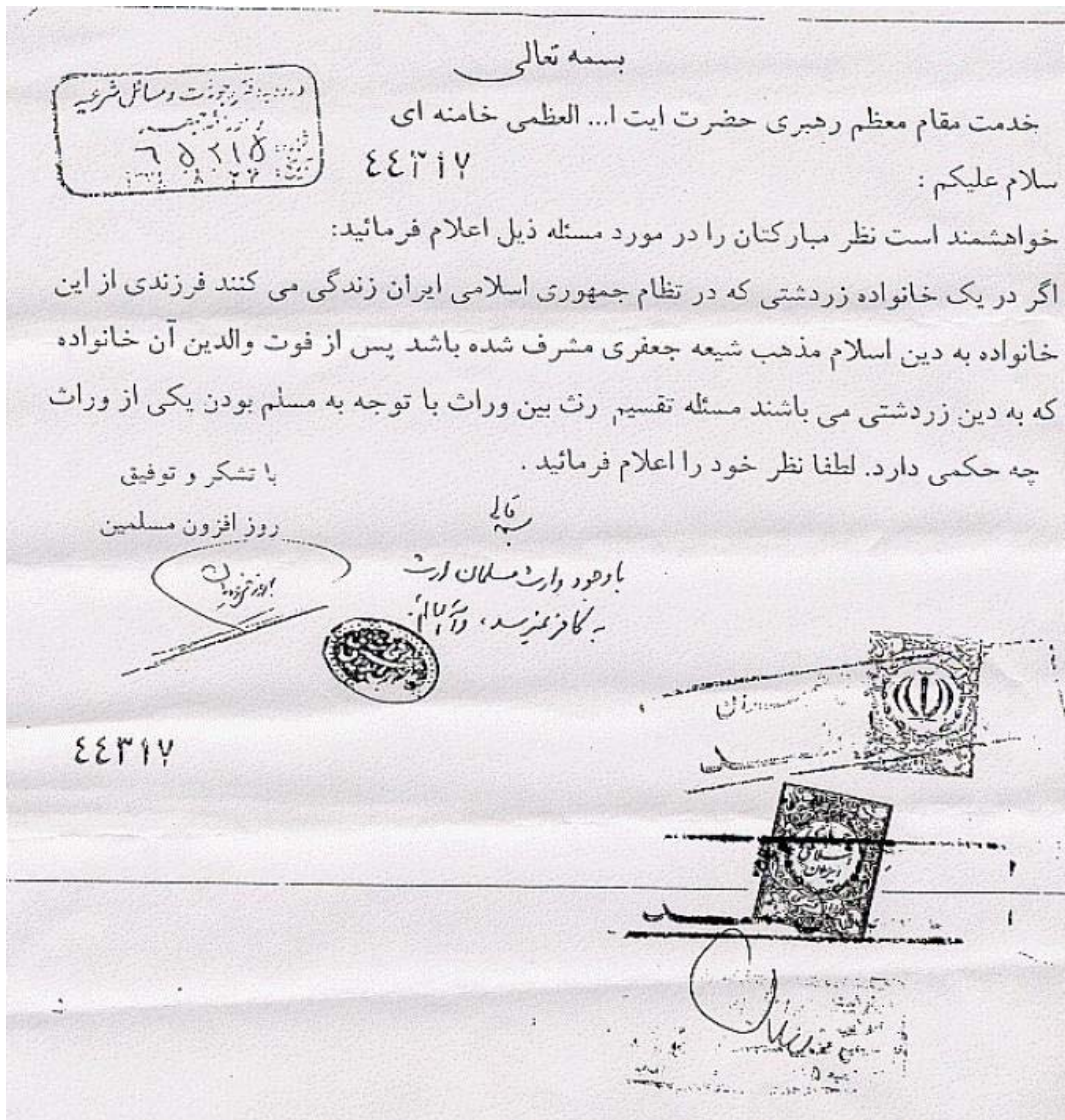 بسمه تعالی
خدمت مقام معظم رهبری حضرت ایت ا... العظمی خامنه ای
٤٤٣١٧
سلام علیکم :
خواهشمند است نظر مبارکتان را در مورد مسئله ذیل اعلام فرمائید:
اگر در یک خانواده زردشتی که در نظام جمهوری اسلامی ایران زندگی می کنند فرزندی از این
خانواده به دین اسلام مذهب شیعه جعفری مشرف شده باشد پس از فوت والدین آن خانواده
که به دین زردشتی می باشند مسئله تقسیم رث بین وراث با توجه به مسلم بودن یکی از وراث
چه حکمی دارد. لطفا نظر خود را اعلام فرمائید .
با تشکر و توفیق
روز افزون مسلمین
بسمه تعالی
با وجود وارث مسلمان ارث
به کافر نمیرسد،
٤٤٣١٧